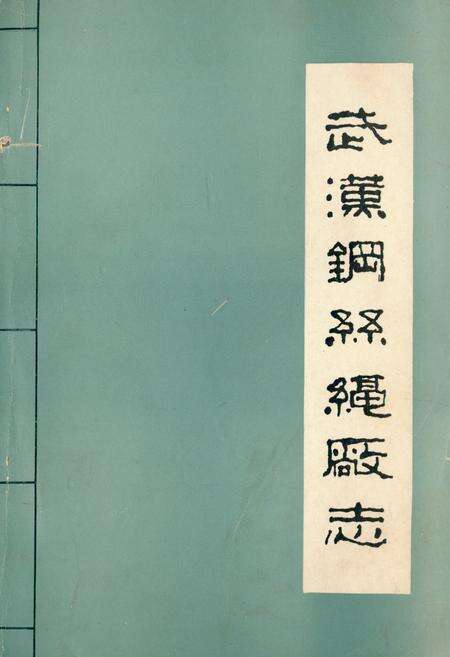 武漢鋼絲繩厰志